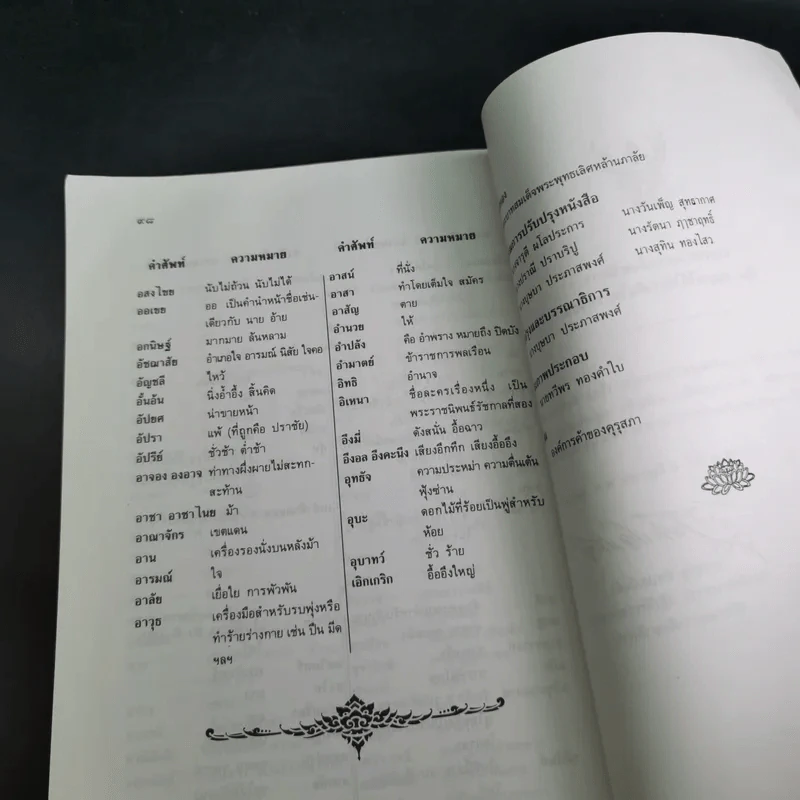 ๙๘
คำศัพท์ ความหมาย
อสงไขย นับไม่ถ้วน นับไม่ได้
ออเขย ออ เป็นคำนำหน้าชื่อเช่น-
เดียวกับ นาย อ้าย
อกนิษฐ์ มากมาย ล้นหลาม
อัชฌาสัย อำเภอใจ อารมณ์ นิสัย ใจคอ
อัญชลี ไหว้
อั้นอ้น นิ่งอ้ำอึ้ง สิ้นคิด
อัปยศ น่าขายหน้า
อัปรา แพ้ (ที่ถูกคือ ปราชัย)
อัปรีย์ ชั่วช้า ต่ำช้า
อาจอง องอาจ ท่าทางผึ่งผายไม่สะทก-
สะท้าน
อาชา อาชาไนย ม้า
อาณาจักร เขตแดน
อาน เครื่องรองนั่งบนหลังม้า
อารมณ์ ใจ
อาลัย เยื่อใย การพัวพัน
อาวุธ เครื่องมือสำหรับรบพุ่งหรือ
ทำร้ายร่างกาย เช่น ปืน มีด
ฯลฯ
คำศัพท์ ความหมาย
อาสน์ ที่นั่ง
อาสา ทำโดยเต็มใจ สมัคร
อาสัญ ตาย
อำนวย ให้
อำปลัง คือ อำพราง หมายถึง ปิดบัง
อำมาตย์ ข้าราชการพลเรือน
อิทธิ อำนาจ
อิเหนา ชื่อละครเรื่องหนึ่ง เป็น
พระราชนิพนธ์รัชกาลที่สอง
อึงมี่ ดังสนั่น อื้อฉาว
อึงอล อึงคะนึง เสียงอึกทึก เสียงอื้ออึง
อุทธัจ ความประหม่า ความตื่นเต้น
ฟุ้งซ่าน
อุบะ ดอกไม้ที่ร้อยเป็นพู่สำหรับ
ห้อย
อุบาทว์ ชั่ว ร้าย
เอิกเกริก อื้ออึงใหญ่
สมเด็จพระพุทธเลิศหล้านภาลัย
การปรับปรุงหนังสือ
ผโลประการ นางวันเพ็ญ สุทธากาศ
ปราณี ปราบริปู นางรัตนา ฦๅชาฤทธิ์
บุษบา ประภาสพงศ์ นางสุทิน ทองไสว
และบรรณาธิการ
บุษบา ประภาสพงศ์
ภาพประกอบ
นายทวีพร ทองคำใบ
องค์การค้าของคุรุสภา